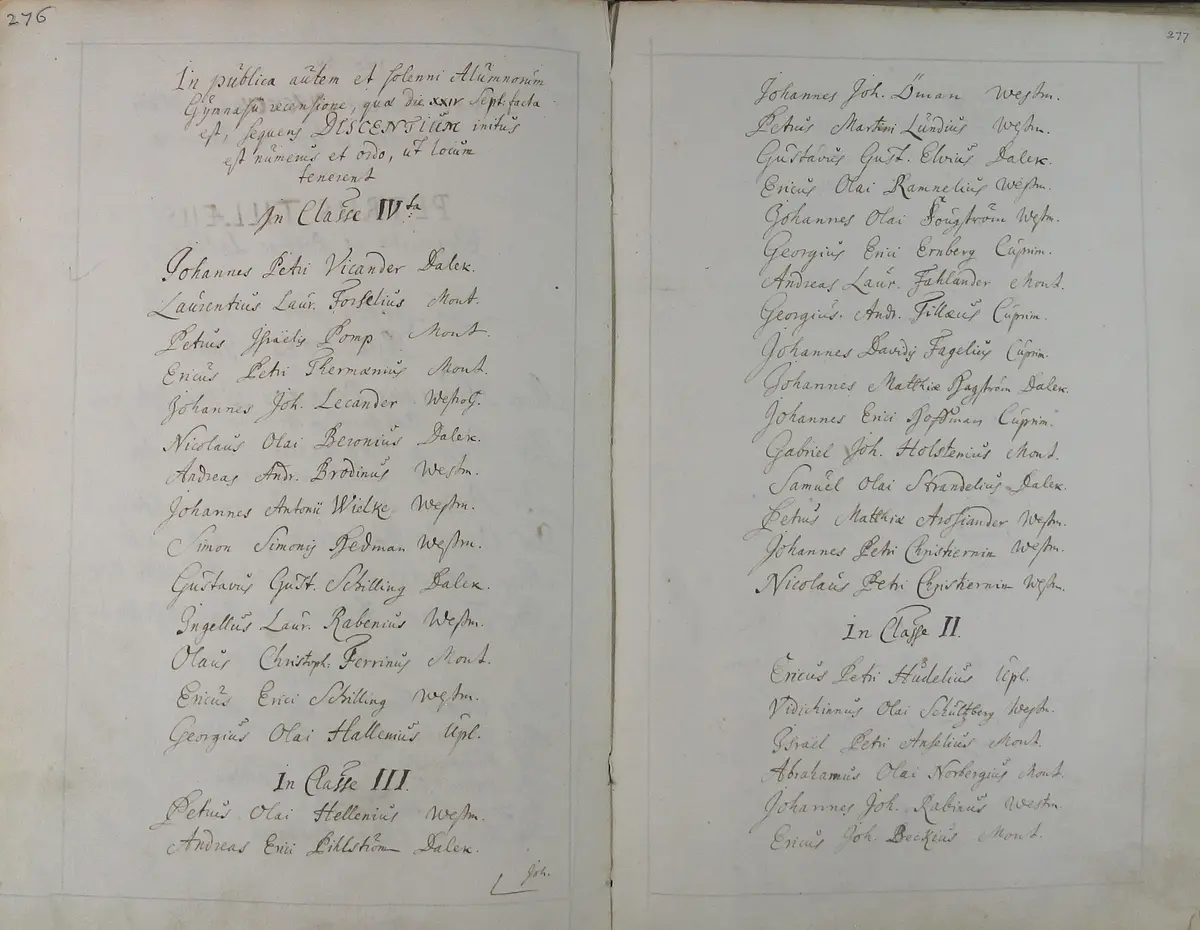 276
In publica autem et solenni Alumnorum
Gymnasii recensione, quæ die XXIV Sept. facta
est, sequens DISCENTIUM initus
est numerus et ordo, ut locum
tenerent
In Classe IV.ta
Johannes Petri Vicander Dalek.
Laurentius Laur. Forselius Mont.
Petrus Israelis Pomp Mont.
Ericus Petri Thermænius Mont.
Johannes Joh. Lecander WestroG.
Nicolaus Olai Beronius Dalek.
Andreas Andr. Brodinus Westm.
Johannes Antonii Wielke Westm.
Simon Simonis Hedman Westm.
Gustavus Gust. Schilling Dalek.
Ingellus Laur. Rabenius Westm.
Olaus Christoph. Ferrinus Mont.
Ericus Erici Schilling Westm.
Georgius Olai Hallenius Upl.
In Classe III.
Petrus Olai Hellenius Westm.
Andreas Erici Pihlström Dalek.
Joh.
277
Johannes Joh. Öman Westm.
Petrus Martini Lundius Westm.
Gustavus Gust. Elvius Dalek.
Ericus Olai Ramnelius Westm.
Johannes Olai Fougström Westm.
Georgius Erici Ernberg Cuprim.
Andreas Laur. Fahlander Mont.
Georgius Andr. Tillæus Cuprim.
Johannes Davidis Fagelius Cuprim.
Johannes Matthiæ Hagström Dalek.
Johannes Erici Hoffman Cuprim.
Gabriel Joh. Holstenius Mont.
Samuel Olai Strandelius Dalek.
Petrus Matthiæ Arosiander Westm.
Johannes Petri Christiernin Westm.
Nicolaus Petri Christiernin Westm.
In Classe II.
Ericus Petri Hudelius Upl.
Vidichinnus Olai Schultzberg Westm.
Israel Petri Anselius Mont.
Abrahamus Olai Norbergius Mont.
Johannes Joh. Rabinus Westm.
Ericus Joh. Beckius Mont.